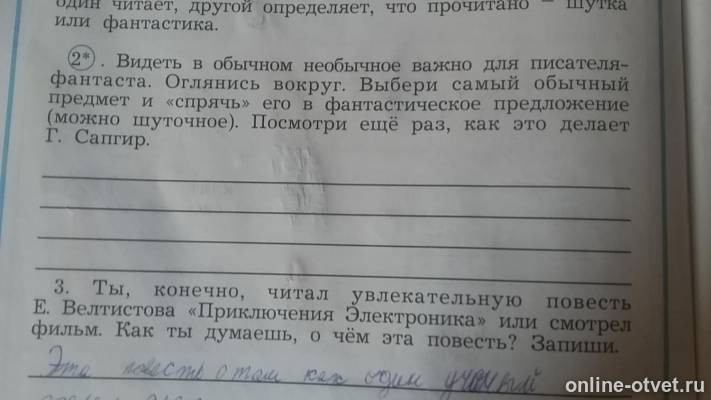 один читает, другой определяет, что прочитано – шутка
или фантастика.
2*. Видеть в обычном необычное важно для писателя-
фантаста. Оглянись вокруг. Выбери самый обычный
предмет и «спрячь» его в фантастическое предложение
(можно шуточное). Посмотри ещё раз, как это делает
Г. Сапгир.
3. Ты, конечно, читал увлекательную повесть
Е. Велтистова «Приключения Электроника» или смотрел
фильм. Как ты думаешь, о чём эта повесть? Запиши.
Эта повесть о том как один учёный
online-otvet.ru